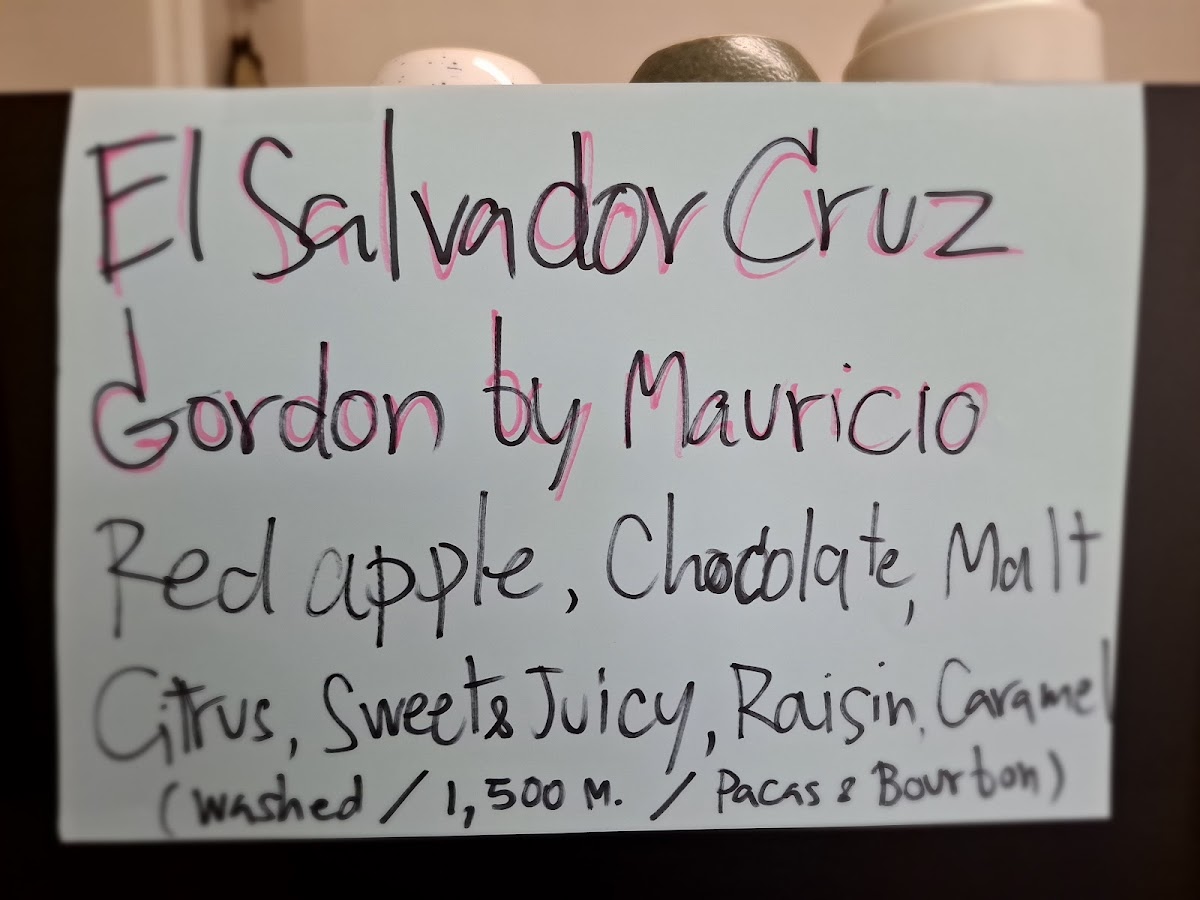 El Salvador Cruz
Gordon by Mauricio
Red apple, Chocolate, Malt
Citrus, Sweet & Juicy, Raisin, Caramel
(Washed / 1,500 M. / Pacas & Bourbon)